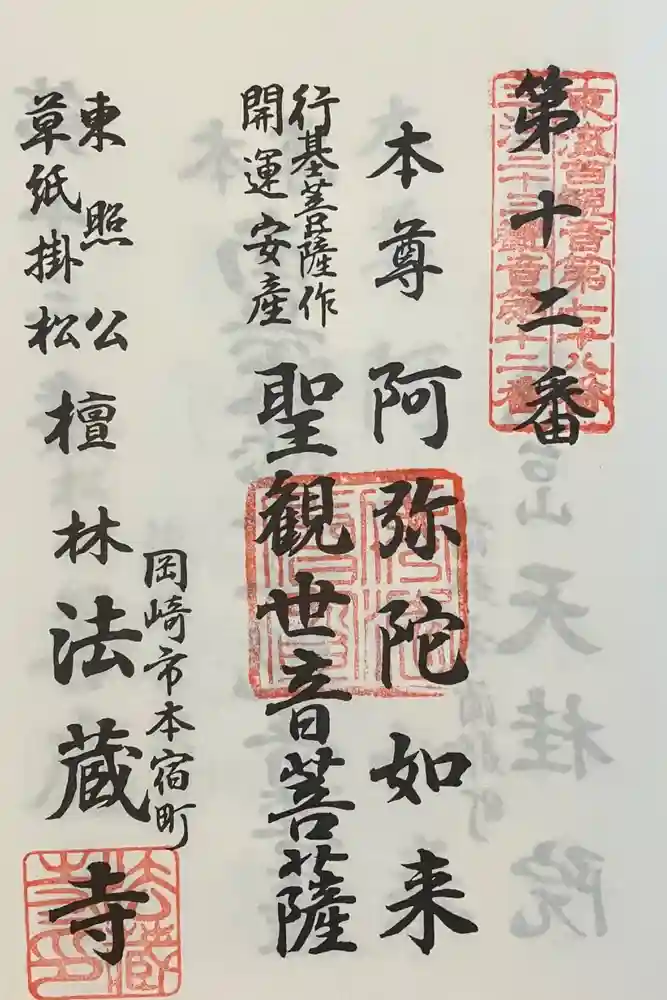 第十二番
東海百観音第七十八番
三河三十三観音第十二番
本尊 阿弥陀如来
行基菩薩作
開運安産
聖観世音菩薩
岡崎市本宿町
東照公
草紙掛松
檀林 法蔵寺